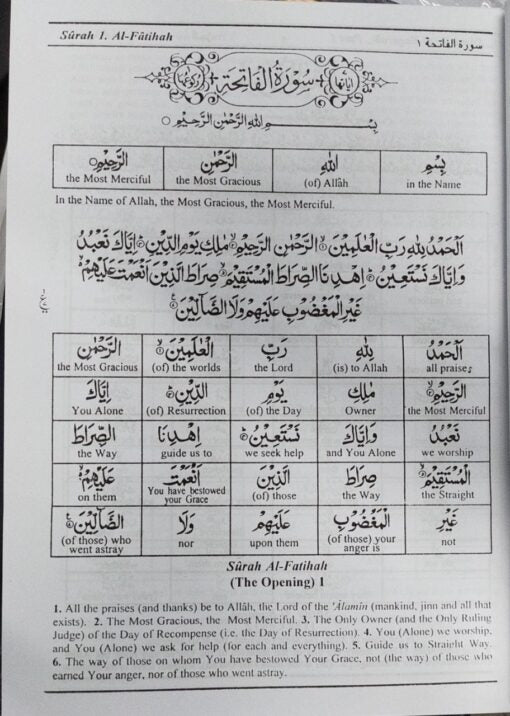 Sûrah 1. Al-Fâtihah
سورة الفاتحة ١
اٰیاتھا سُوْرَةُ الْفَاتِحَةِ رکوعھا
بِسْمِ اللهِ الرَّحْمٰنِ الرَّحِيْمِ
بِسْمِ اللهِ الرَّحْمٰنِ الرَّحِيْمِ
in the Name (of) Allâh the Most Gracious the Most Merciful
In the Name of Allah, the Most Gracious, the Most Merciful.
اَلْحَمْدُ لِلّٰهِ رَبِّ الْعٰلَمِيْنَ الرَّحْمٰنِ الرَّحِيْمِ مٰلِكِ يَوْمِ الدِّيْنِ اِيَّاكَ نَعْبُدُ
وَاِيَّاكَ نَسْتَعِيْنُ اِهْدِنَا الصِّرَاطَ الْمُسْتَقِيْمَ صِرَاطَ الَّذِيْنَ اَنْعَمْتَ عَلَيْهِمْ
غَيْرِ الْمَغْضُوْبِ عَلَيْهِمْ وَلَا الضَّآلِّيْنَ
اَلْحَمْدُ لِلّٰهِ رَبِّ الْعٰلَمِيْنَ الرَّحْمٰنِ
all praises (is) to Allah the Lord (of) the worlds the Most Gracious
الرَّحِيْمِ مٰلِكِ يَوْمِ الدِّيْنِ اِيَّاكَ
the Most Merciful Owner (of) the Day (of) Resurrection You Alone
نَعْبُدُ وَاِيَّاكَ نَسْتَعِيْنُ اِهْدِنَا الصِّرَاطَ
we worship and You Alone we seek help guide us to the Way
الْمُسْتَقِيْمَ صِرَاطَ الَّذِيْنَ اَنْعَمْتَ عَلَيْهِمْ
the Straight the Way (of) those You have bestowed your Grace on them
غَيْرِ الْمَغْضُوْبِ عَلَيْهِمْ وَلَا الضَّآلِّيْنَ
not (of those) your anger is upon them nor (of those) who went astray
Sûrah Al-Fatihah
(The Opening) 1
1. All the praises (and thanks) be to Allâh, the Lord of the 'Âlamîn (mankind, jinn and all that
exists). 2. The Most Gracious, the Most Merciful. 3. The Only Owner (and the Only Ruling
Judge) of the Day of Recompense (i.e. the Day of Resurrection). 4. You (Alone) we worship,
and You (Alone) we ask for help (for each and everything). 5. Guide us to Straight Way.
6. The way of those on whom You have bestowed Your Grace, not (the way) of those who
earned Your anger, nor of those who went astray.